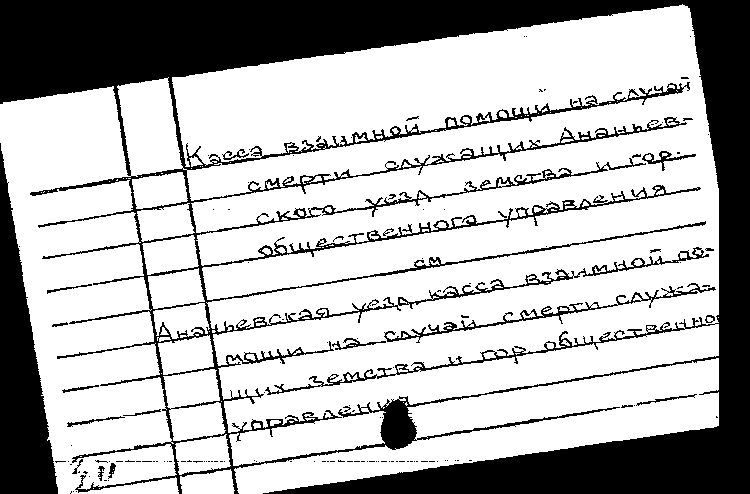 Касса взаимной помощи на случай
смерти служащих Ананьев-
ского уезд. земства и гор.
общественного управления
см.
Ананьевская уезд. касса взаимной по-
мощи на случай смерти служа-
щих земства и гор общественно
управления